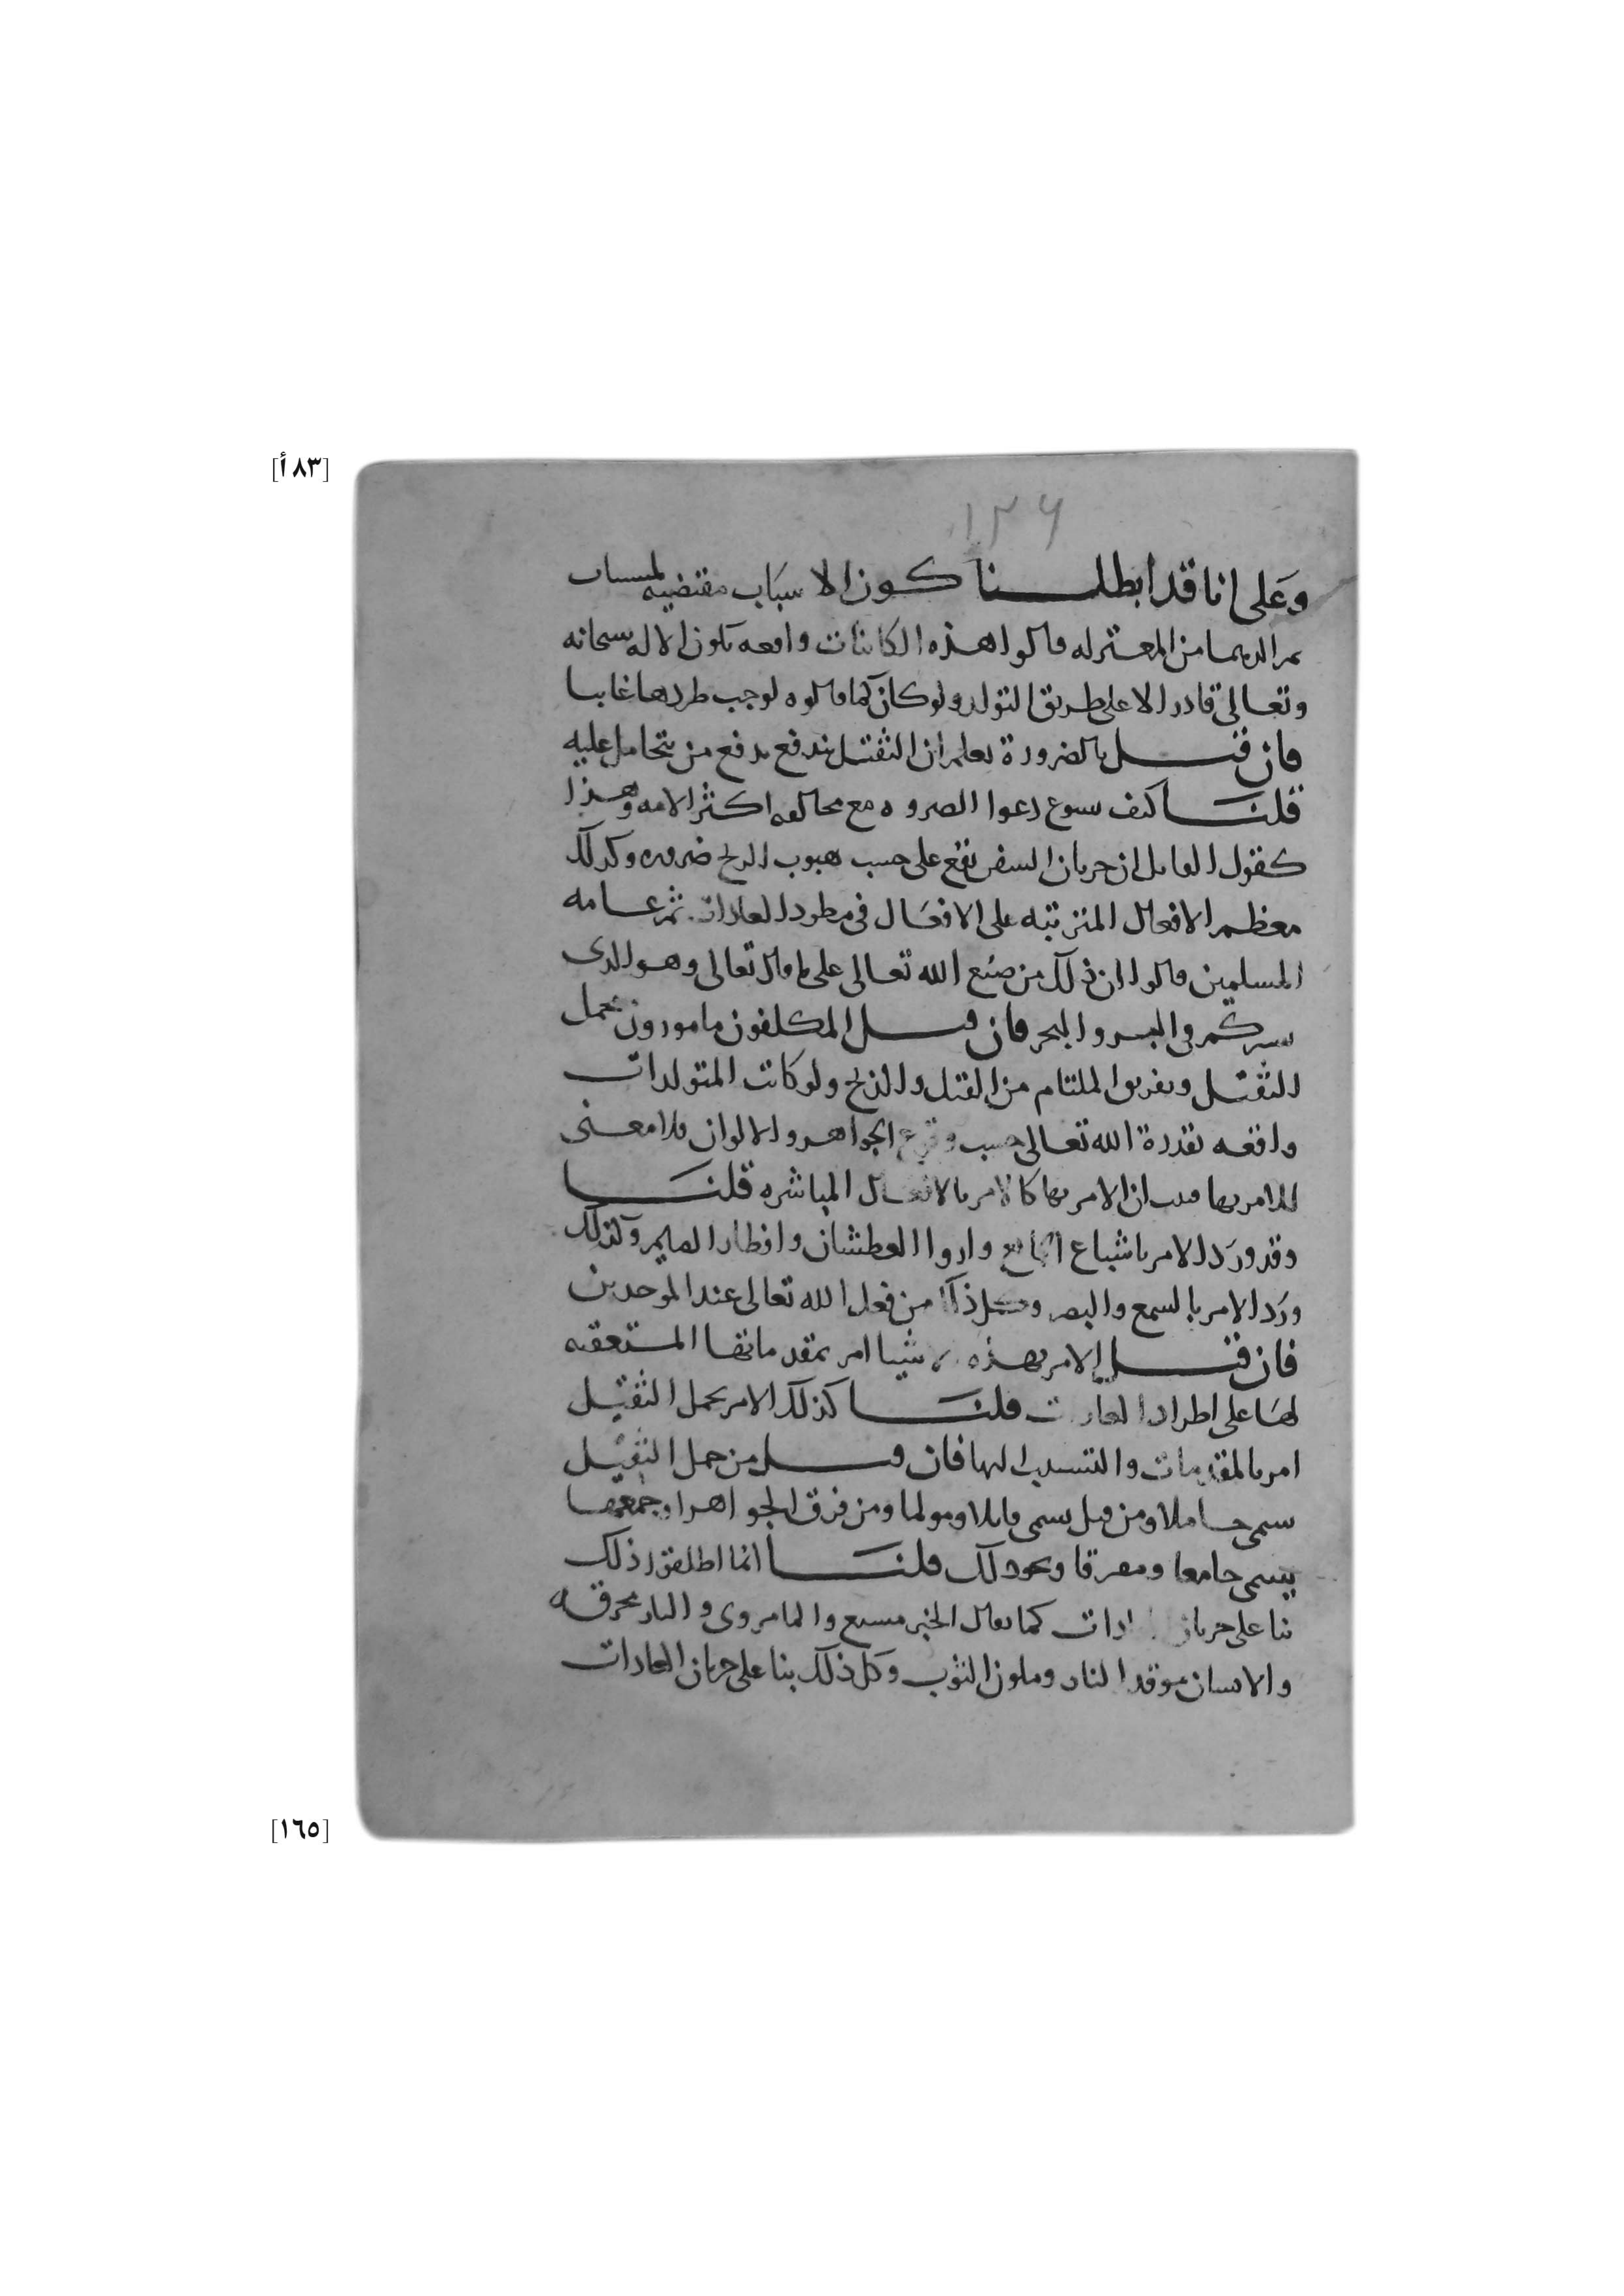 [٨٣ أ]
١٣٦
وعلى انا قد ابطلنا كون الاسباب مقتضيه لمسببات
ثم الدهما من المعتزله قالوا هذه الكاينات واقعه بكون الاله سبحانه
وتعالى قادرا لا على طريق التولد ولو كان كما قالوه لوجب طردها غايبا
فان قيل بالضرورة نعلم ان الثقيل يندفع بدفع من يتحامل عليه
قلنا كيف يسوغ دعوا الضروه مع مخالفه اكثر الامه وهذا
كقول القايل ان جريان السفن يقع على حسب هبوب الريح ضروره وكذلك
معظم الافعال المترتبه على الافعال في مطرد العادات ثم عامه
المسلمين قالوا ان ذلك من صنع الله تعالى على ما قال تعالى وهو الذى
يسيركم في البر والبحر فان قيل المكلفون مامورون بحمل
الثقيل وتفريق الملتام من القتل والذبح ولو كانت المتولدات
واقعه بقدرة الله تعالى حسب وقوع الجواهر والالوان فلا معنى
للامر بها فلت ان الامر بها كالامر بالافعال المباشره قلنا
وقد ورد الامر باشباع الجايع واروا العطشان وافطار الصايم وكذلك
ورد الامر بالسمع والبصر وكل ذلك من فعل الله تعالى عند الموحدين
فان قيل الامر بهذه الاشيا امر بمقدماتها المستعقبه
لها على اطراد العادات قلنا كذلك الامر بحمل الثقيل
امر بالمقدمات والتسبب اليها فان قيل من حمل الثقيل
سمى حاملا ومن قتل يسمى قاتلا ومولما ومن فرق الجواهر او جمعها
يسمى جامعا ومفرقا ونحو ذلك قلنا انما اطلقوا ذلك
بنا على جريان العادات كما يقال الخبز مشبع والما مروى والنار محرقه
والانسان موقد النار وملون الثوب وكل ذلك بنا على جريان العادات
[١٦٥]